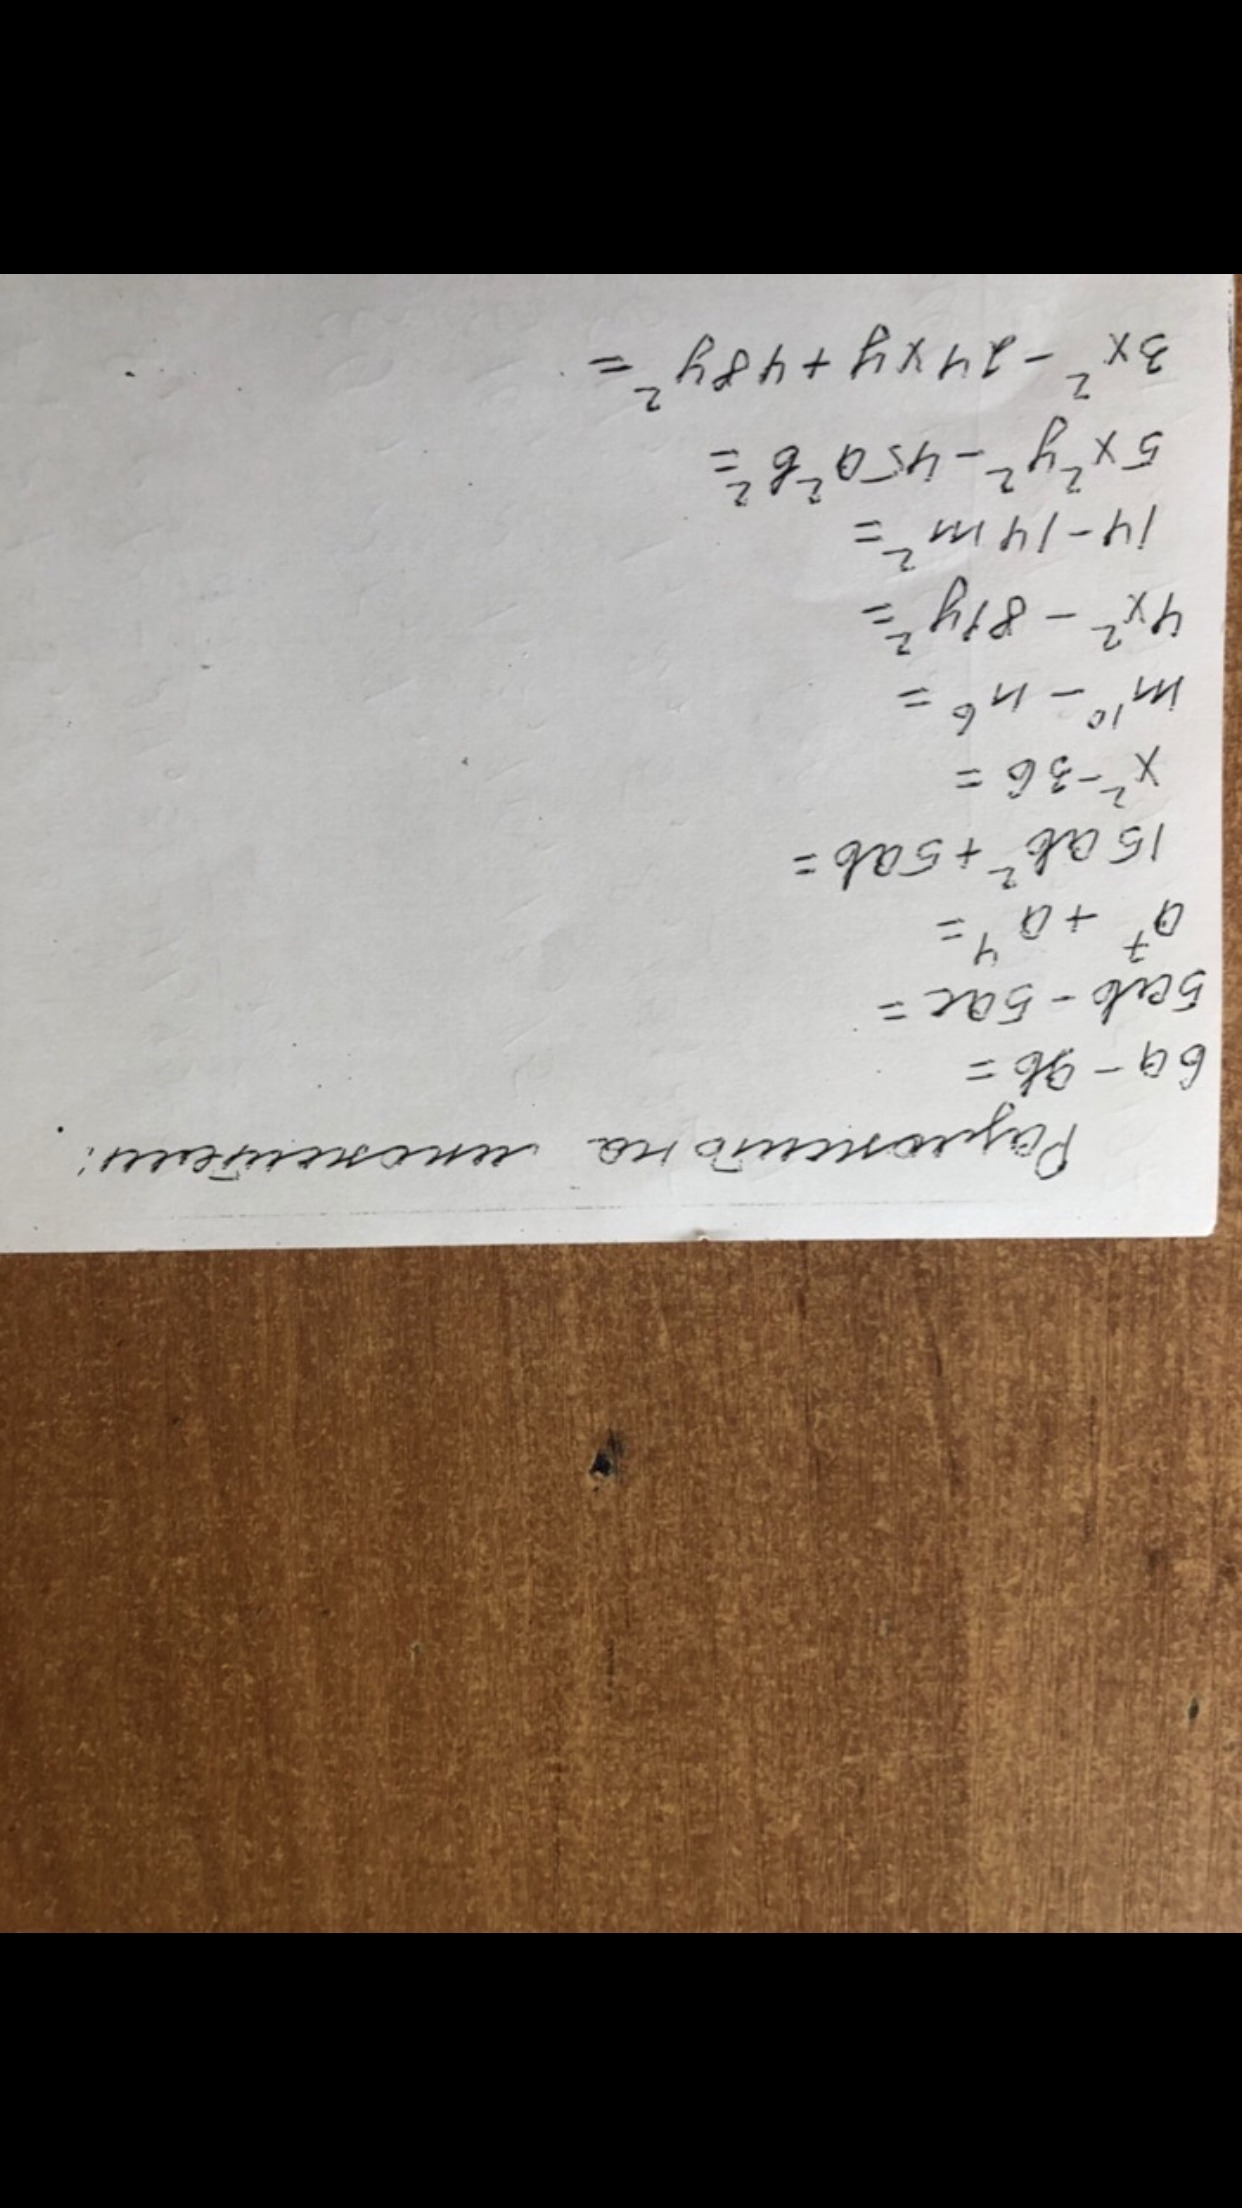 Разложить на множители:
6a - 9b =
5ab - 5ac =
a⁷ + a⁴ =
15ab² + 5ab =
x² - 36 =
m¹⁰ - n⁶ =
4x² - 81y² =
14 - 14m² =
5x²y² - 45a²b² =
3x² - 24xy + 48y² =